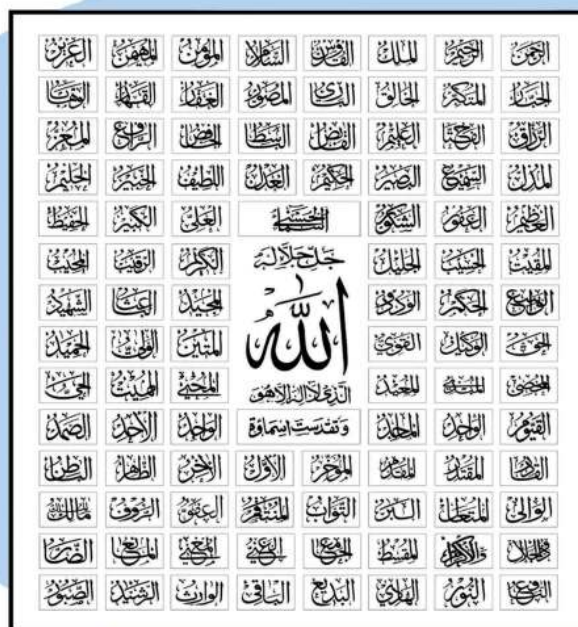 الرحمن الرحيم الملك القدوس السلام المؤمن المهيمن العزيز
الجبار المتكبر الخالق البارئ المصور الغفار القهار الوهاب
الرزاق الفتاح العليم القابض الباسط الخافض الرافع المعز
المذل السميع البصير الحكم العدل اللطيف الخبير الحليم
العظيم الغفور الشكور العلي الكبير الحفيظ
المقيت الحسيب الجليل جل جلاله الكريم الرقيب المجيب
الواسع الحكيم الودود المجيد الباعث الشهيد
الحق الوكيل القوي الله المتين الولي الحميد
المحصي المبدئ المعيد الذي لا اله الا هو المحيي المميت الحي
القيوم الواجد الماجد وتقدست اسماؤه الواحد الأحد الصمد
القادر المقتدر المقدم المؤخر الأول الآخر الظاهر الباطن
الوالي المتعال البر التواب المنتقم العفو الرؤوف مالك الملك
ذو الجلال والإكرام المقسط الجامع الغني المغني المانع الضار
النافع النور الهادي البديع الباقي الوارث الرشيد الصبور